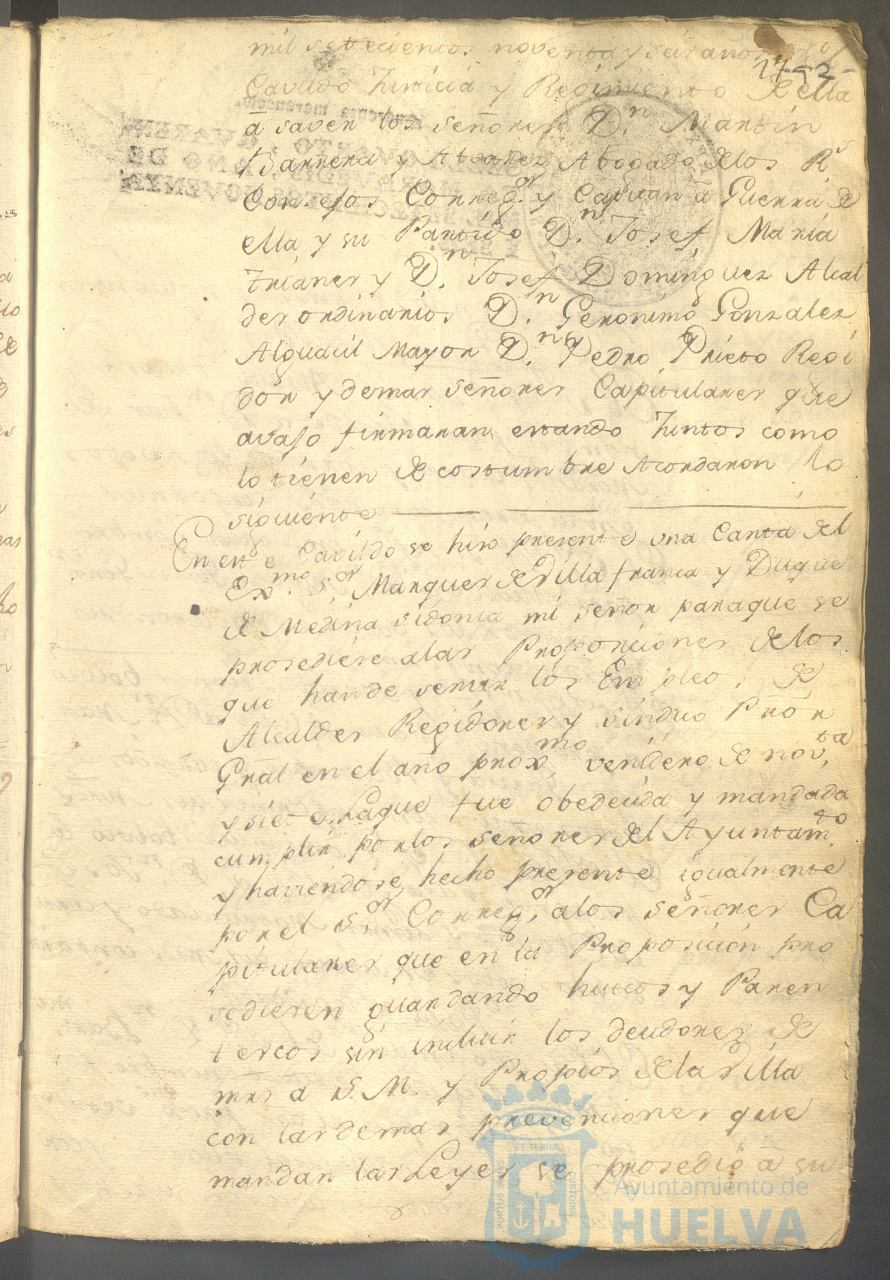 mil setecientos noventa y seis años
17-92-
Cavildo Justicia y Regimiento de ella
a saver los señores Dn. Martín
Barrera y Alvarez Abogado de los Rs
Consejos Correg.or y Capitan a Guerra de
ella y su Partido Dn. Josef María
Trianer y Dn. Josef Dominguez Alcal
des ordinarios Dn. Geronimo Gonzalez
Alguacil Mayor Dn. Pedro Prieto Regi
dor y demas señores Capitulares que
avajo firmaran estando Juntos como
lo tienen de costumbre Acordaron lo
siguiente
En este Cavildo se hizo presente una Carta del
Exmo. S.or Marques de Villa franca y Duque
de Medina sidonia mi señor para que se
prosediese a las Proposiciones de los
que han de servir los Empleos de
Alcaldes Regidores y sindico Prór
Gral en el año proxmo. venidero de nov.ta
y siete. La que fue obedecida y mandada
cumplir por los señores del Ayuntam.to
y haviendose hecho presente igualmente
por el S.or Correg.or a los señores Ca
pitulares que en la Proposición pro
sedieren guardando huecos y Paren
tercos sin incluir los deudores de
mrs a S.M. y Propios de la Villa
con las demas prevenciones que
mandan las Leyes se prosedió a su
Ayuntamiento de
HUELVA